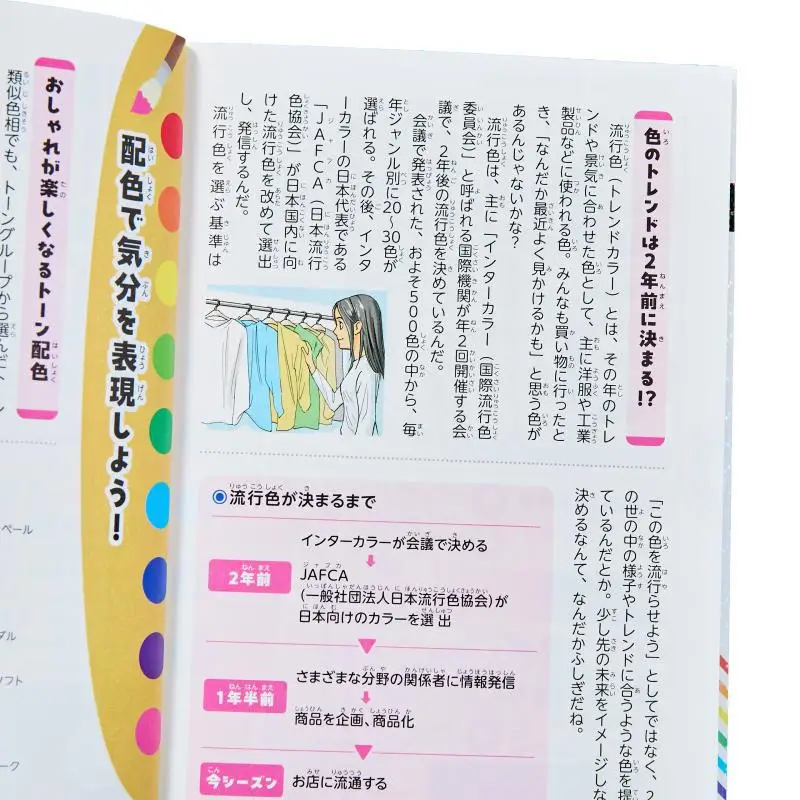 色のトレンドは2年前に決まる!?
流行色（トレンドカラー）とは、その年のトレ
ンドや景気に合わせた色として、主に洋服や工業
製品などに使われる色。みんなも買い物に行ったと
き、「なんだか最近よく見かけるかも」と思う色が
あるんじゃないかな？
流行色は、主に「インターカラー（国際流行色
委員会）」と呼ばれる国際機関が年2回開催する会
議で、2年後の流行色を決めているんだ。
会議で発表された、およそ500色の中から、毎
年ジャンル別に20〜30色が
選ばれる。その後、インタ
ーカラーの日本代表である
「JAFCA（日本流行
色協会）」が日本国内に向
けた流行色を改めて選出
し、発信するんだ。
流行色を選ぶ基準は
「この色を流行らせよう」としてではなく、2
の世の中の様子やトレンドに合うような色を提
ているんだとか。少し先の未来をイメージしな
決めるなんて、なんだかふしぎだね。
流行色が決まるまで
インターカラーが会議で決める
2年前
JAFCA
(一般社団法人日本流行色協会)が
日本向けのカラーを選出
1年半前
さまざまな分野の関係者に情報発信
商品を企画、商品化
今シーズン
お店に流通する
配色で気分を表現しよう!
おしゃれが楽しくなるトーン配色
類似色相でも、トーングループから選んだト
ペール
ダル
ソフト
ーク